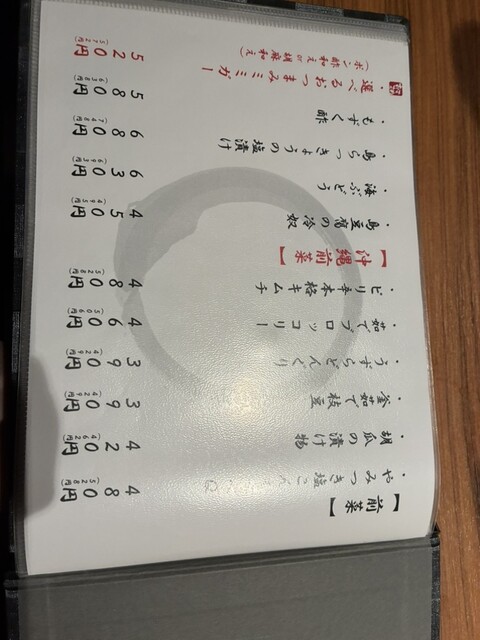 【前菜】
・やみつき塩こん
480円
(528円)
・胡瓜の漬け物
420円
(462円)
・釜茹で枝豆
390円
(429円)
・うずらどんぐり
390円
(429円)
・茹でブロッコリー
460円
(506円)
・ピリ辛本格キムチ
480円
(528円)
【沖縄前菜】
・島豆腐の冷奴
450円
(495円)
・海ぶどう
630円
(693円)
・島らっきょうの塩漬け
680円
(748円)
・もずく酢
580円
(638円)
・選べるおつまみミミガー
(ポン酢和え or 胡麻和え)
520円
(572円)